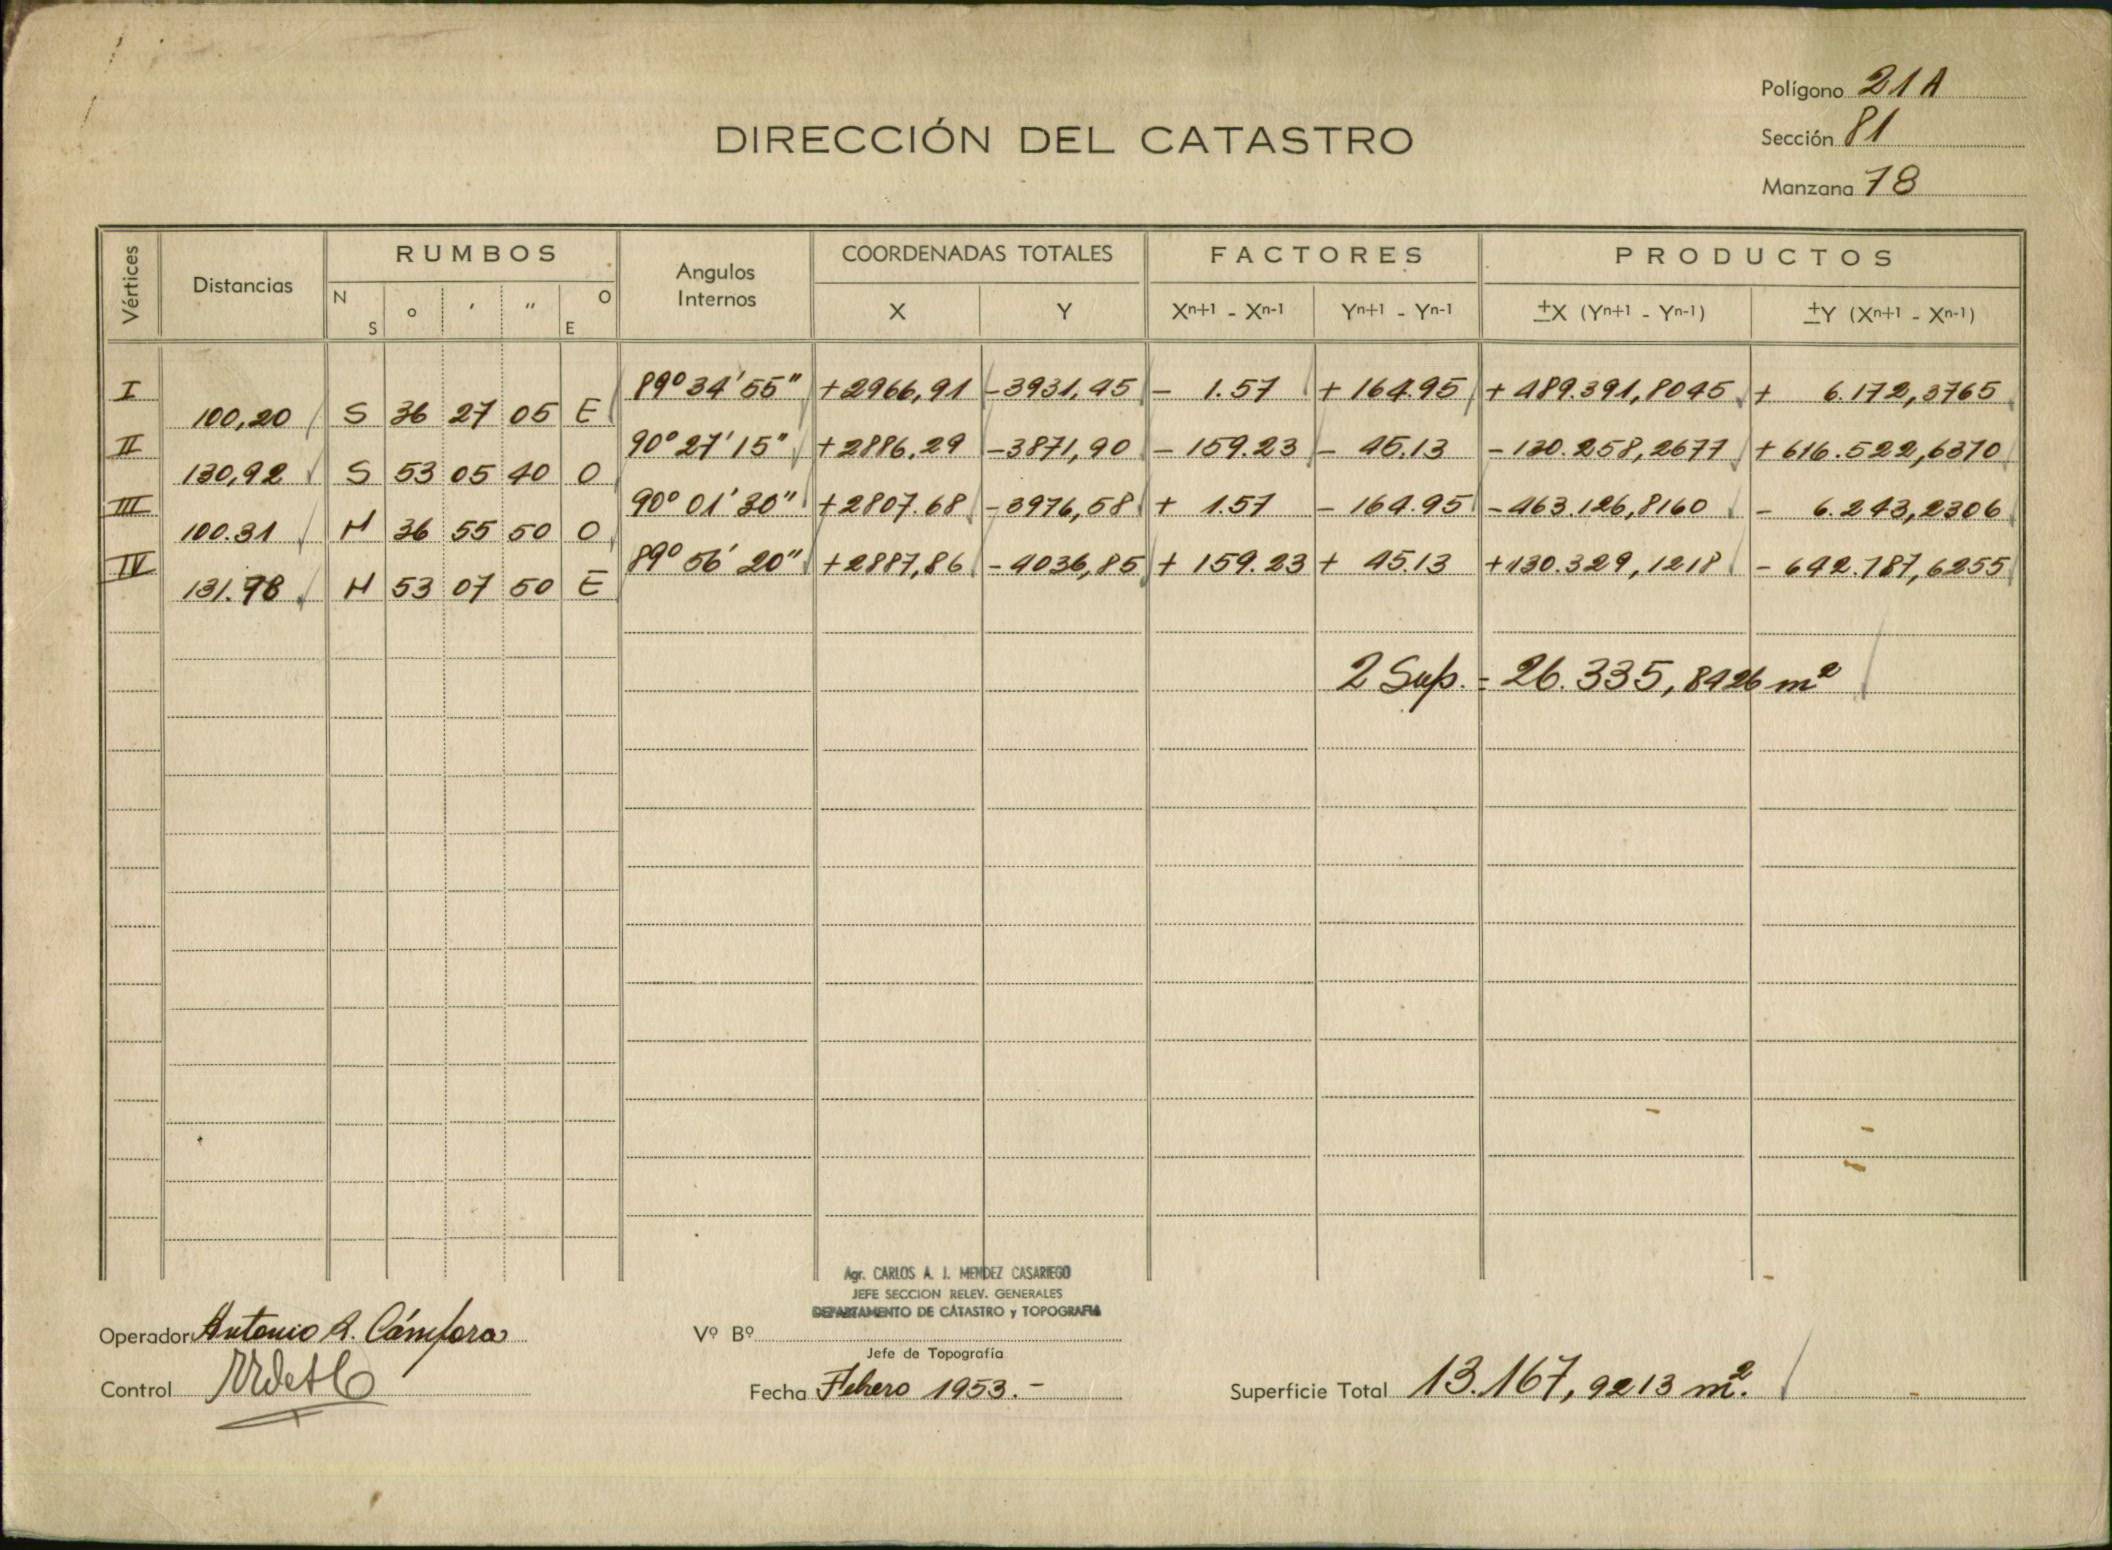 Polígono 21A
DIRECCIÓN DEL CATASTRO
Sección 81
Manzana 78
Vértices Distancias RUMBOS Angulos Internos COORDENADAS TOTALES FACTORES PRODUCTOS
N S ° ′ ″ O E X Y Xn+1 - Xn-1 Yn+1 - Yn-1 ±X (Yn+1 - Yn-1) ±Y (Xn+1 - Xn-1)
I 89° 34' 55" +2966,91 -3931,45 - 1.57 + 164.95 + 489.391,8045 + 6.172,3765
100,20 S 36 27 05 E
II 90° 27' 15" +2886.29 -3871,90 - 159.23 - 45.13 - 130.258,2677 + 616.522,6370
130,92 S 53 05 40 O
III 90° 01' 30" +2807.68 -3976,58 + 1.57 - 164.95 - 463.126,8160 - 6.243,2306
100.31 N 36 55 50 O
IV 89° 56' 20" +2887,86 -4036,85 + 159.23 + 45.13 +130.329,1218 - 642.787,6255
131.78 N 53 07 50 E
2 Sup. = 26.335,8426 m²
Agr. CARLOS A. J. MENDEZ CASARIEGO
JEFE SECCION RELEV. GENERALES
DEPARTAMENTO DE CATASTRO y TOPOGRAFIA
Operador Antonio A. Cámfora Vº Bº
Jefe de Topografía
Control Fecha Febrero 1953.- Superficie Total 13.167,9213 m².